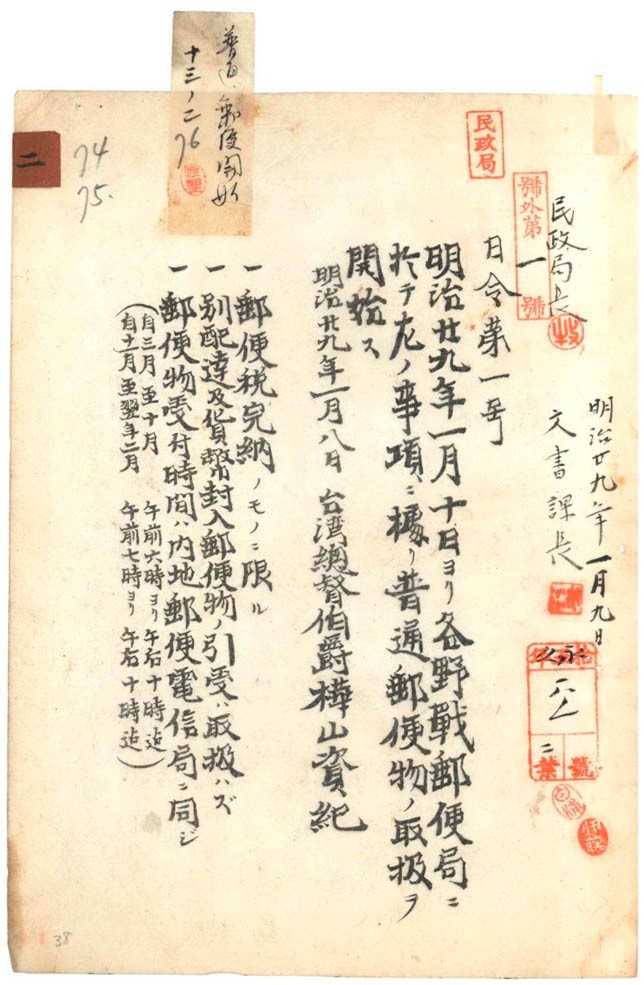 民政局
號外第一號
民政局長
明治廿九年一月九日
文書課長
永久
二
號
日令第一号
明治廿九年一月十日ヨリ各野戰郵便局ニ
於テ左ノ事項ニ據リ普通郵便物ノ取扱ヲ
開始ス
明治廿九年一月八日 台湾總督伯爵樺山資紀
一 郵便税完納ノモノニ限ル
一 別配達及貨幣封入郵便物ノ引受ハ取扱ハズ
一 郵便物受付時間ハ内地郵便電信局ニ同ジ
(自三月至十月 午前六時ヨリ午后十時迠
自十一月至翌年二月 午前七時ヨリ午后十時迠)
普通郵便開始
十三ノ二
76
74
75.
二
38